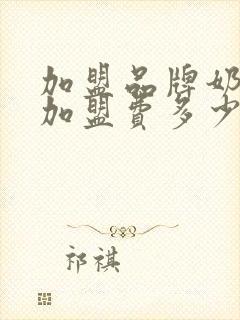 加盟品牌奶
加盟费多少
祁祺